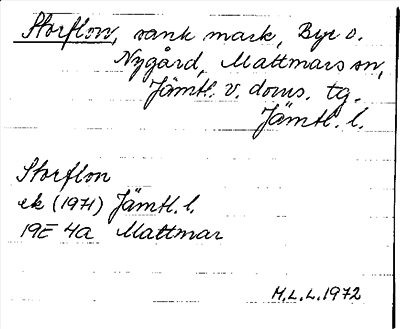 Storflon, sank mark, Bye o.
Nygård, Mattmars sn,
Jämtl. v. doms. tg.
Jämtl. l.
Storflon
ek (1971) Jämtl. l.
19E 4a Mattmar
M.L.L. 1972